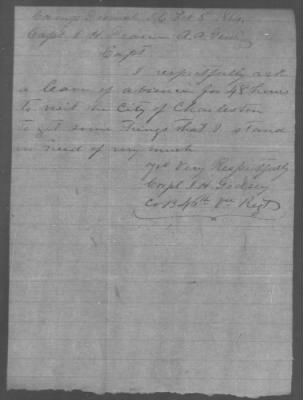 Camp S.C. Feb 5 1864
Capt. H. A. A. Genl
Capt
I respectfully ask
a leave of absence for 48 hours
to visit the City of Charleston
to get some things that I stand
in need of very much
Very Respectfully
Corpl J. H.
Co B 46th Va Regt